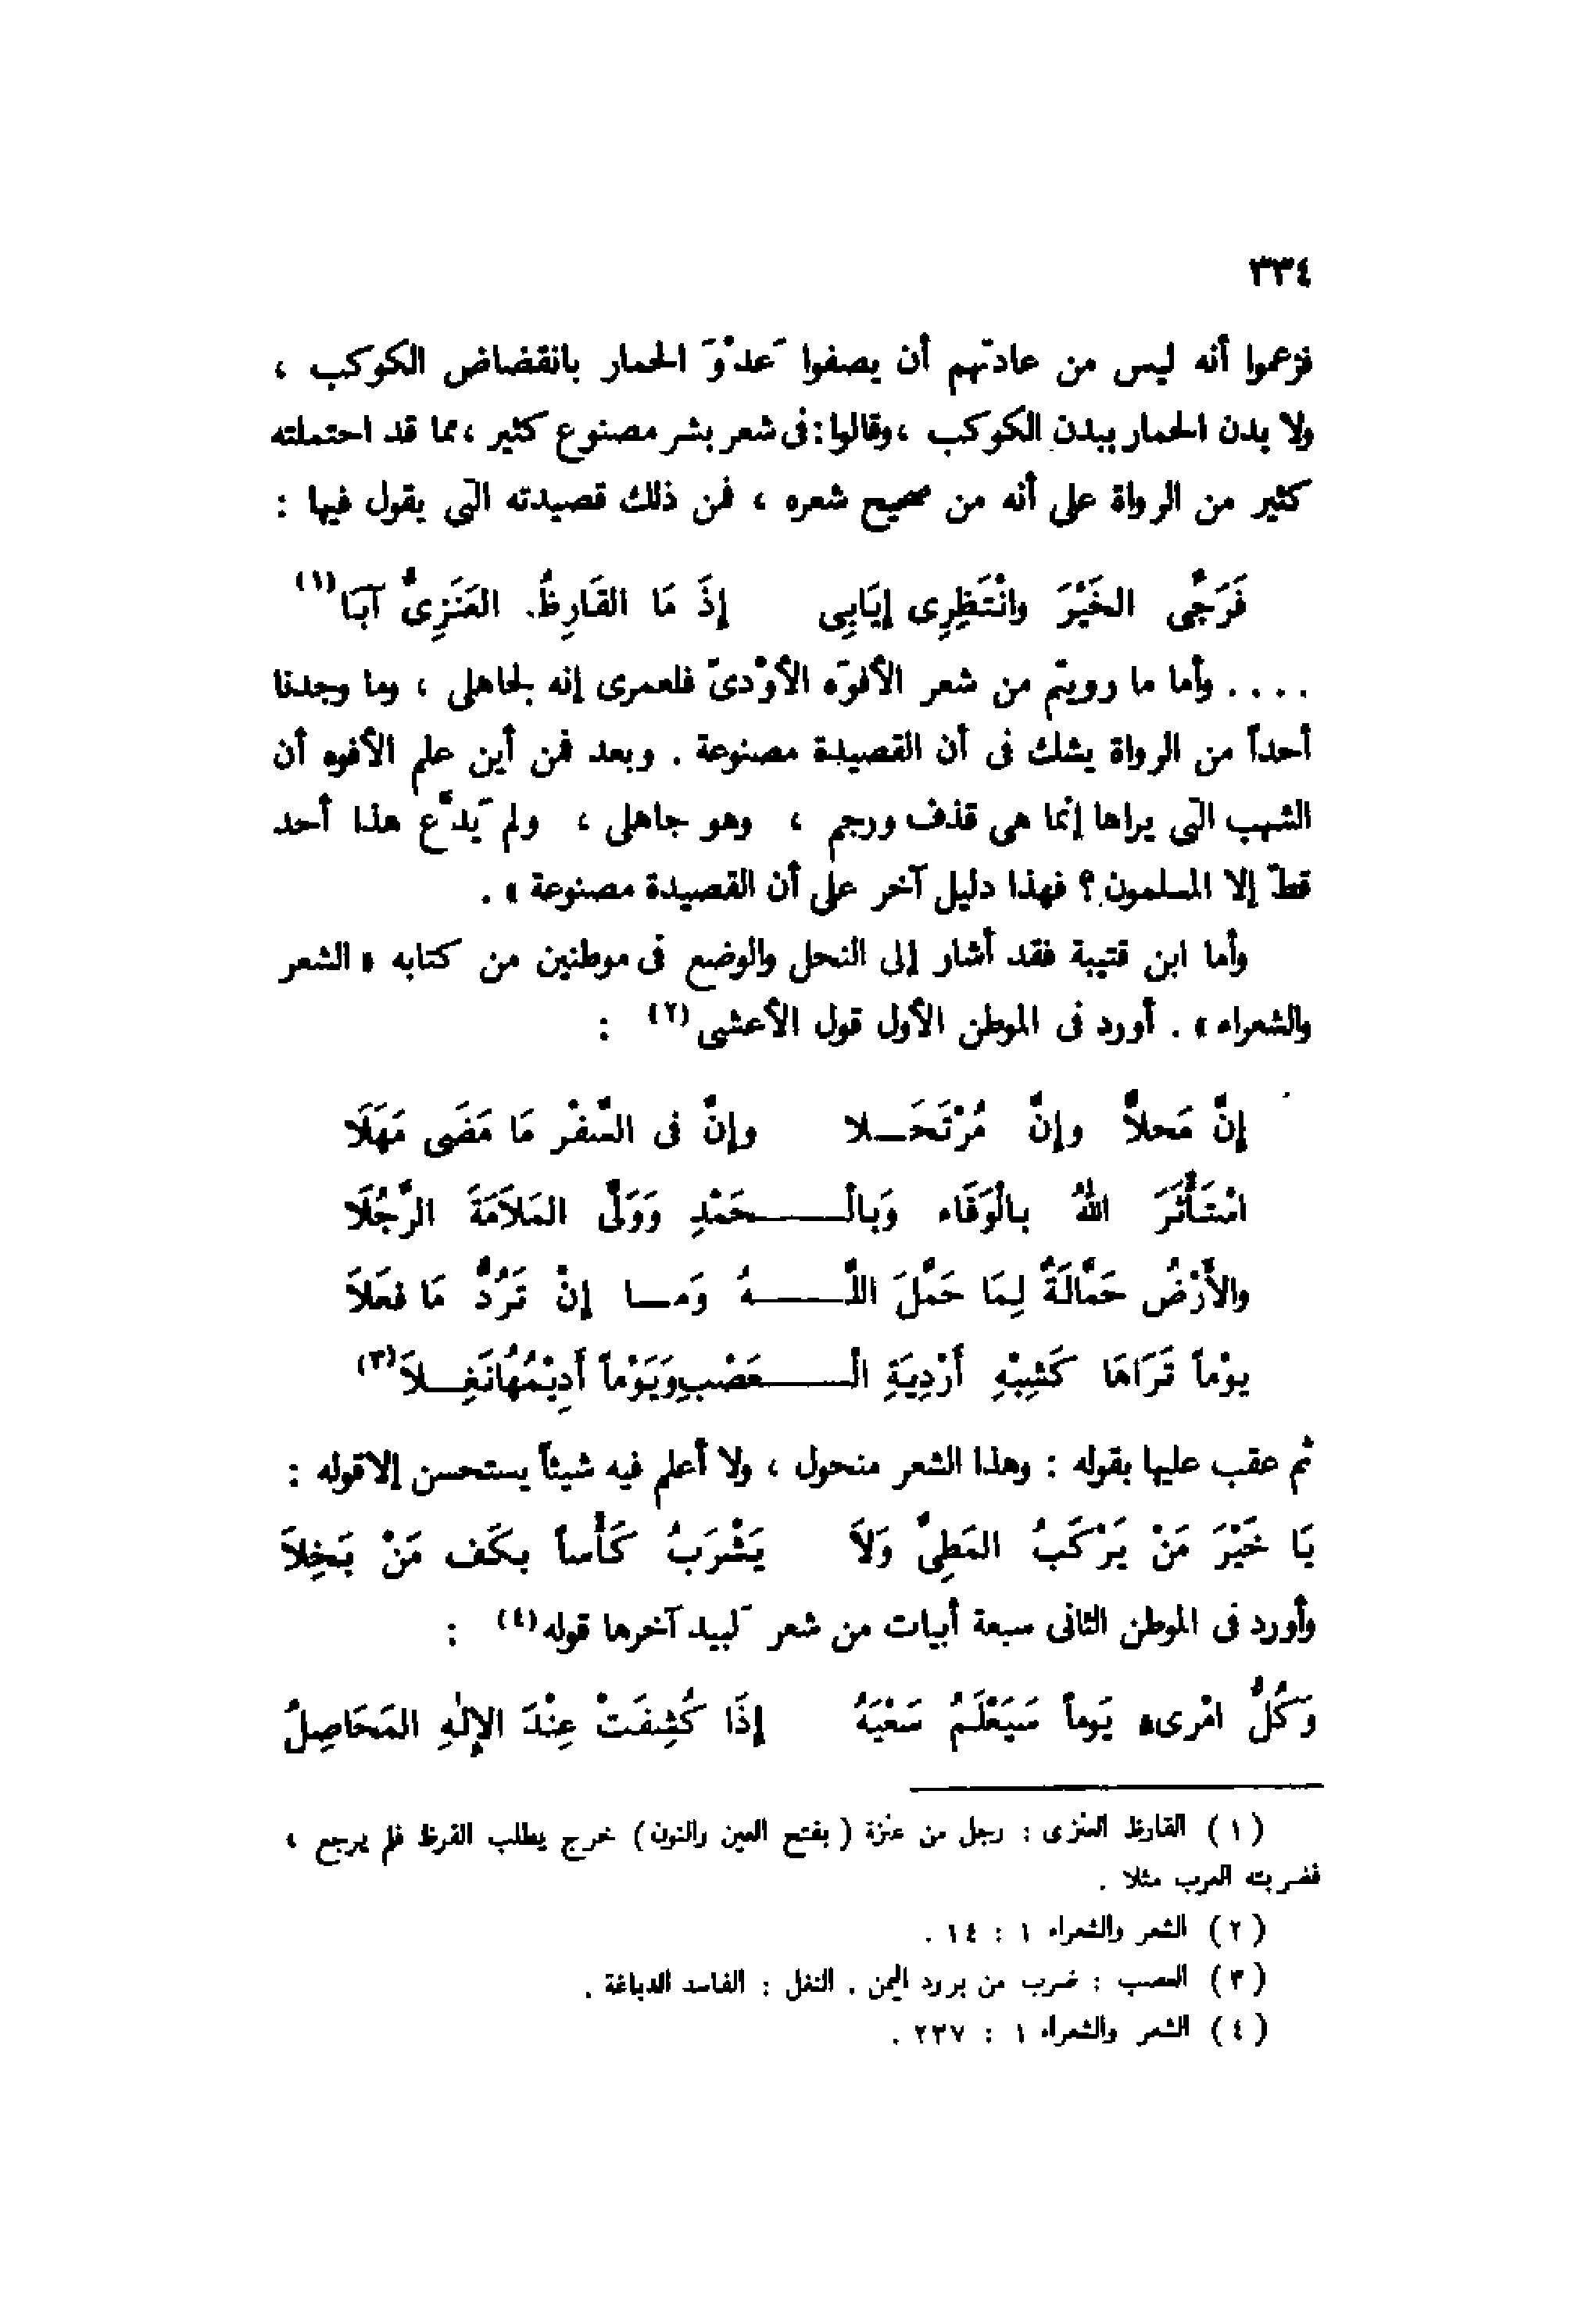 ٣٣٤
فزعموا أنه ليس من عادتهم أن يصفوا عَدْوَ الحمار بانقضاض الكوكب ،
ولا بدن الحمار ببدن الكوكب ، وقالوا : فى شعر بشر مصنوع كثير ، مما قد احتملته
كثير من الرواة على أنه من صحيح شعره ، فمن ذلك قصيدته التى يقول فيها :
فَرَجِّى الخَيْرَ وانْتَظِرِى إيَابِى إذَ مَا القَارِظُ العَنَزِىُّ آبَا (١)
.... وأما ما رويتم من شعر الأفوَه الأوْدىّ فلعمرى إنه لجاهلى ، وما وجدنا
أحداً من الرواة يشك فى أن القصيدة مصنوعة . وبعد فمن أين علم الأفوه أن
الشهب التى يراها إنما هى قذف ورجم ، وهو جاهلى ، ولم يَدَّع هذا أحد
قطّ إلا المسلمون ؟ فهذا دليل آخر على أن القصيدة مصنوعة » .
وأما ابن قتيبة فقد أشار إلى النحل والوضع فى موطنين من كتابه « الشعر
والشعراء » . أورد فى الموطن الأول قول الأعشى (٢) :
إنَّ مَحلاًّ وإنَّ مُرْتَحَــلا وإنَّ فى السَّفْر مَا مَضَى مَهَلَا
اسْتَأْثَرَ اللهُ بالْوَفَاء وَبالْـــحَمْدِ وَوَلَّى المَلاَمَةَ الرَّجُلَا
والأَرْضُ حَمَّالَةٌ لِمَا حَمَّلَ اللَّـــهُ وَمَــا إنْ تَرُدُّ مَا فعَلاَ
يوْماً تَرَاهَا كَشِبْهِ أَرْدِيَةِ الْـــعَصْبِ وَيَوْماً أَدِيْمُهَا نَغِــلاَ (٣)
ثم عقب عليها بقوله : وهذا الشعر منحول ، ولا أعلم فيه شيئاً يستحسن إلا قوله :
يَا خَيْرَ مَنْ يَرْكَبُ المَطِىَّ وَلاَ يَشْرَبُ كَأْساً بكَف مَنْ بَخِلاَ
وأورد فى الموطن الثانى سبعة أبيات من شعر لَبيد آخرها قوله (٤) :
وَكُلُّ امْرىء يَوماً سَيَعْلَمُ سَعْيَهُ إذَا كُشِفَتْ عِنْدَ الإِلٰهِ المَحَاصِلُ
( ١ ) القارظ العنزى : رجل من عنزة ( بفتح العين والنون ) خرج يطلب القرظ فلم يرجع ،
فضربته العرب مثلا .
( ٢ ) الشعر والشعراء ١ : ١٤ .
( ٣ ) العصب : ضرب من برود اليمن . النغل : الفاسد الدباغة .
( ٤ ) الشعر والشعراء ١ : ٢٣٧ .